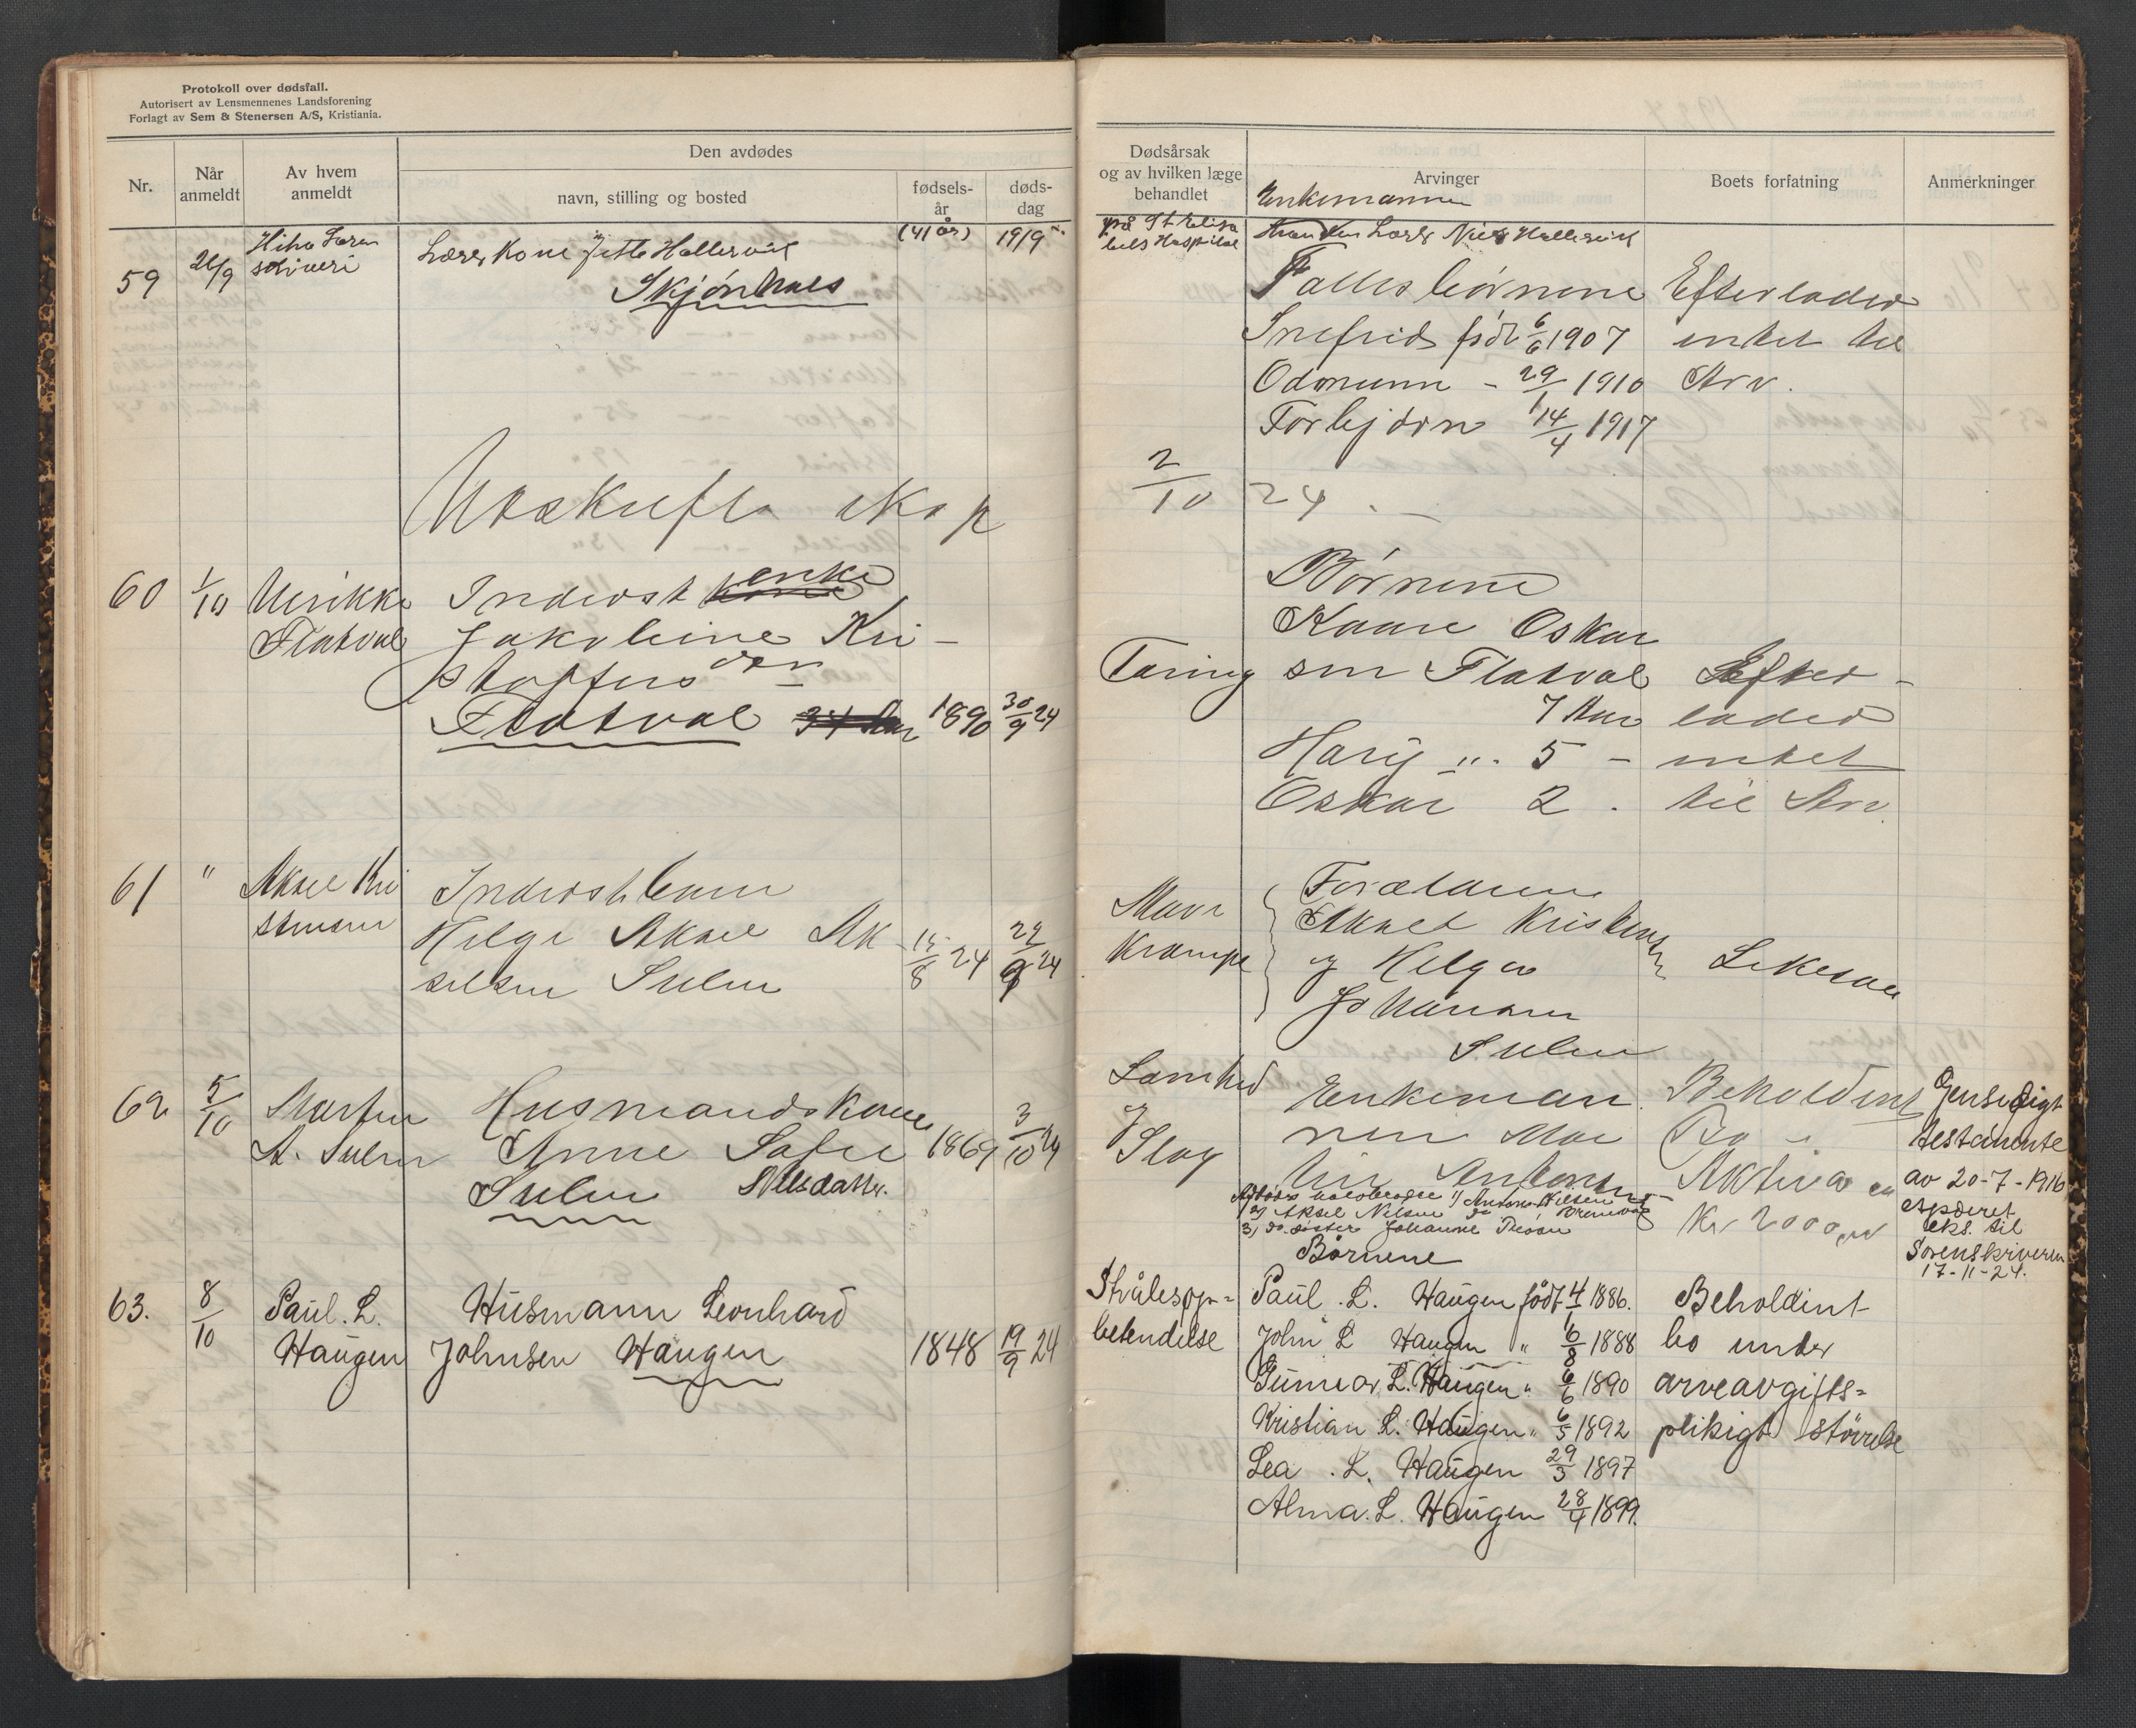 Protokoll over dødsfall.
Autorisert av Lensmennenes Landsforening
Forlagt av Sem & Stenersen A/S, Kristiania.
Nr.
Når anmeldt
Av hvem anmeldt
Den avdødes
navn, stilling og bosted
fødsels-år
døds-dag
59 26/9
skriveri
Lærerkone Jette Hallervik
(41 år) 19/9
Skjønhals
Utskrift skap
60 1/10 Ulrikke Inderst kone enke
Flatval Jakobine Kri-
stoffersen
Flatval 34 Aar 1890 30/9 24
61 " Aksel Kri Inderstbarn
stensen Helge Aksel Ak 15/8 24 29/9 24
selsen Sulen
62 5/10 Martin Husmandskone
A. Sulen Anne Sofie 1869 3/10 24
Sulen Nilsdatter.
63. 8/10 Paul. L. Husmann Leonhard
Haugen Johnsen Haugen 1848 19/9 24
Dødsårsak
og av hvilken læge
behandlet
Arvinger
Boets forfatning
Anmerkninger
Enkemannen
på St Elisa
bets Hospital
Lærer Nils Hallervik
Fellesbørnene Efterlader
Snefrid født 6/6 1907 intet til
Odmunn - 29/1 1910 Arv.
Torbjørn 14/4 1917
2/10 24.-
Børnene
Kaare Oskar
Tæring sen Flatval Efter-
7 Aar lader
Harij ". 5 - intet
Oskar 2. til Arv.
Forældrene
Mave Aksel Kristensen
Krampe og Helga Likesaa
Johansen
Sulen
Enkeman Beholdent Gensidigt
nen Mar Bo - testamente
Slag tin Anton Aktiva ca av 20-7-1916
Avdødes halvbrødre 1) Anton Nilsen
2) Aksel Nilsen do Kr 2000,00
3) do. søster Johanne eks. til
Sorenskriveren
17-11-24.
Børnene
Strålesop= Paul. L. Haugen født 4/1 1886. Beholdint
betendelse John L Haugen " 6/8 1888 bo under
Gunnar L. Haugen " 6/6 1890 arveavgifts=
Kristian L. Haugen " 6/5 1892 plikigt størrelse
Lea. L. Haugen 29/3 1897
Alma. L. Haugen 28/4 1899.